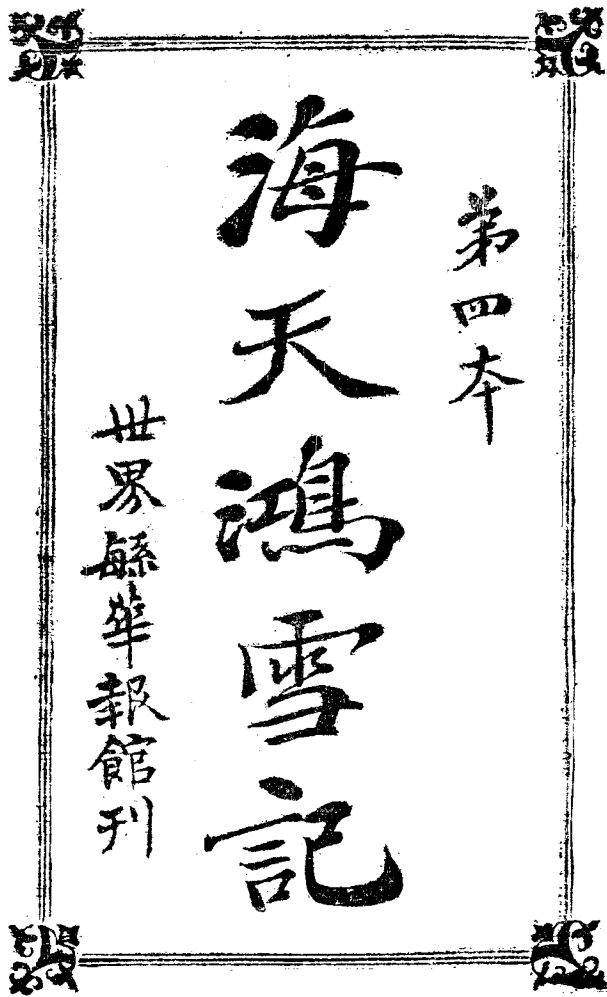 第四本
海天鴻雪記
世界緐華報館刊